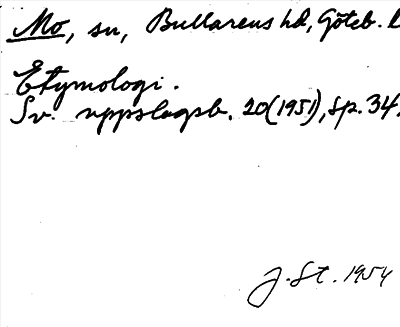 Mo, sn, Bullarens hd, Göteb. l
Etymologi.
Sv. uppslagsb. 20(1951), sp. 34.
J. St. 1954